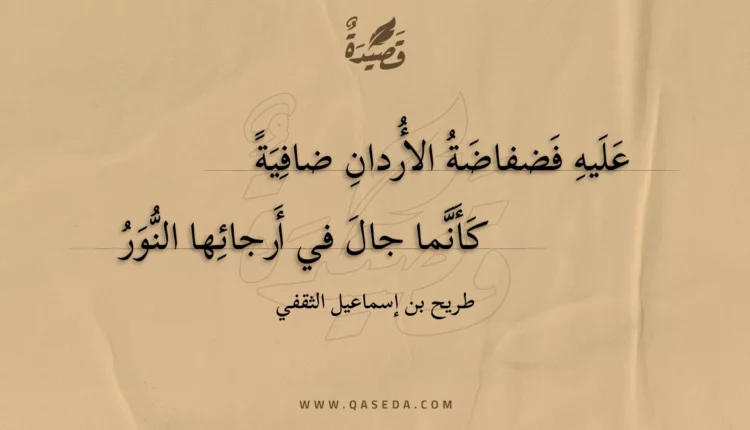 قَصِيْدَةٌ
عَلَيهِ فَضفاضَةُ الأُردانِ ضافِيَةً
كَأَنَّما جالَ في أَرجائِها النُّوَرُ
طريح بن إسماعيل الثقفي
WWW.QASEDA.COM